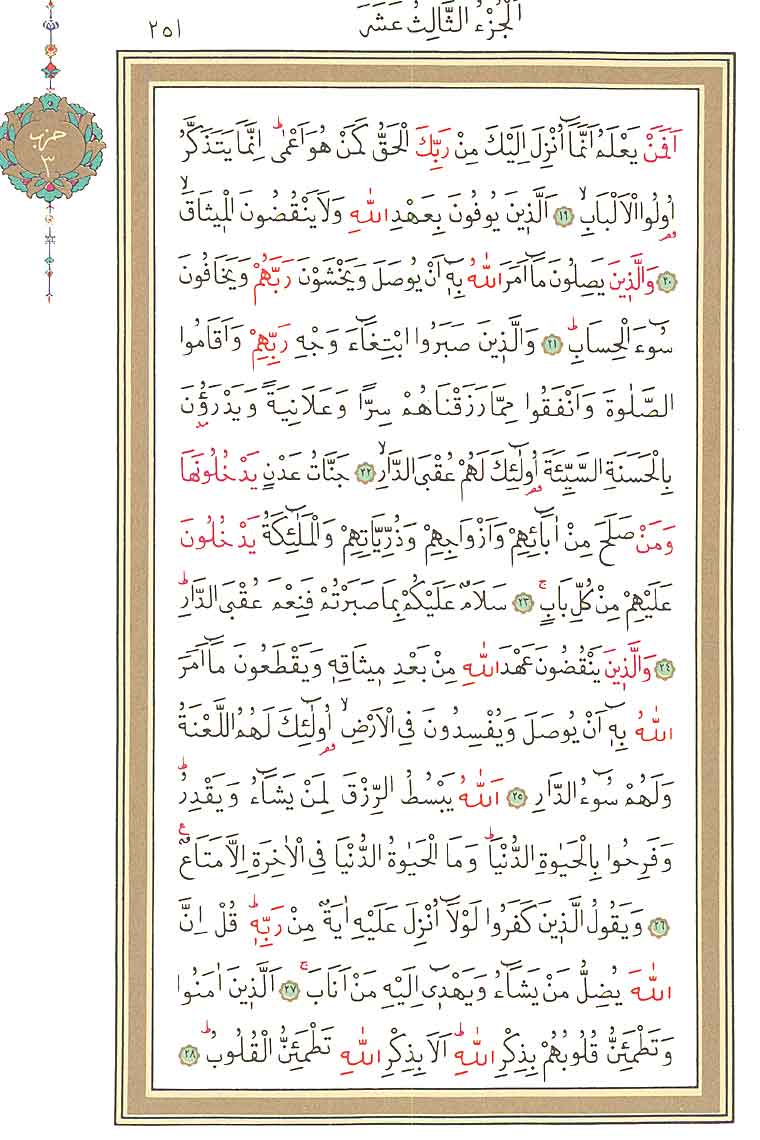 اَلْجُزْءُ الثَّالِثُ عَشَرَ
٢٥١
حزب
٣
اَفَمَنْ يَعْلَمُ اَنَّمَٓا اُنْزِلَ اِلَيْكَ مِنْ رَبِّكَ الْحَقُّ كَمَنْ هُوَ اَعْمٰىۜ اِنَّمَا يَتَذَكَّرُ
اُو۬لُوا الْاَلْبَابِۙ ﴿١٩﴾ اَلَّذ۪ينَ يُوفُونَ بِعَهْدِ اللّٰهِ وَلَا يَنْقُضُونَ الْم۪يثَاقَۙ
﴿٢٠﴾ وَالَّذ۪ينَ يَصِلُونَ مَٓا اَمَرَ اللّٰهُ بِه۪ٓ اَنْ يُوصَلَ وَيَخْشَوْنَ رَبَّهُمْ وَيَخَافُونَ
سُٓوءَ الْحِسَابِۜ ﴿٢١﴾ وَالَّذ۪ينَ صَبَرُوا ابْتِغَٓاءَ وَجْهِ رَبِّهِمْ وَاَقَامُوا
الصَّلٰوةَ وَاَنْفَقُوا مِمَّا رَزَقْنَاهُمْ سِرًّا وَعَلَانِيَةً وَيَدْرَؤُ۫نَ
بِالْحَسَنَةِ السَّيِّئَةَ اُو۬لٰٓئِكَ لَهُمْ عُقْبَى الدَّارِۙ ﴿٢٢﴾ جَنَّاتُ عَدْنٍ يَدْخُلُونَهَا
وَمَنْ صَلَحَ مِنْ اٰبَٓائِهِمْ وَاَزْوَاجِهِمْ وَذُرِّيَّاتِهِمْ وَالْمَلٰٓئِكَةُ يَدْخُلُونَ
عَلَيْهِمْ مِنْ كُلِّ بَابٍۚ ﴿٢٣﴾ سَلَامٌ عَلَيْكُمْ بِمَا صَبَرْتُمْ فَنِعْمَ عُقْبَى الدَّارِۜ
﴿٢٤﴾ وَالَّذ۪ينَ يَنْقُضُونَ عَهْدَ اللّٰهِ مِنْ بَعْدِ م۪يثَاقِه۪ وَيَقْطَعُونَ مَٓا اَمَرَ
اللّٰهُ بِه۪ٓ اَنْ يُوصَلَ وَيُفْسِدُونَ فِي الْاَرْضِۙ اُو۬لٰٓئِكَ لَهُمُ اللَّعْنَةُ
وَلَهُمْ سُٓوءُ الدَّارِ ﴿٢٥﴾ اَللّٰهُ يَبْسُطُ الرِّزْقَ لِمَنْ يَشَٓاءُ وَيَقْدِرُۜ
وَفَرِحُوا بِالْحَيٰوةِ الدُّنْيَاۜ وَمَا الْحَيٰوةُ الدُّنْيَا فِي الْاٰخِرَةِ اِلَّا مَتَاعٌ۟
﴿٢٦﴾ وَيَقُولُ الَّذ۪ينَ كَفَرُوا لَوْلَٓا اُنْزِلَ عَلَيْهِ اٰيَةٌ مِنْ رَبِّه۪ۜ قُلْ اِنَّ
اللّٰهَ يُضِلُّ مَنْ يَشَٓاءُ وَيَهْد۪ٓي اِلَيْهِ مَنْ اَنَابَۚ ﴿٢٧﴾ اَلَّذ۪ينَ اٰمَنُوا
وَتَطْمَئِنُّ قُلُوبُهُمْ بِذِكْرِ اللّٰهِۜ اَلَا بِذِكْرِ اللّٰهِ تَطْمَئِنُّ الْقُلُوبُۜ ﴿٢٨﴾